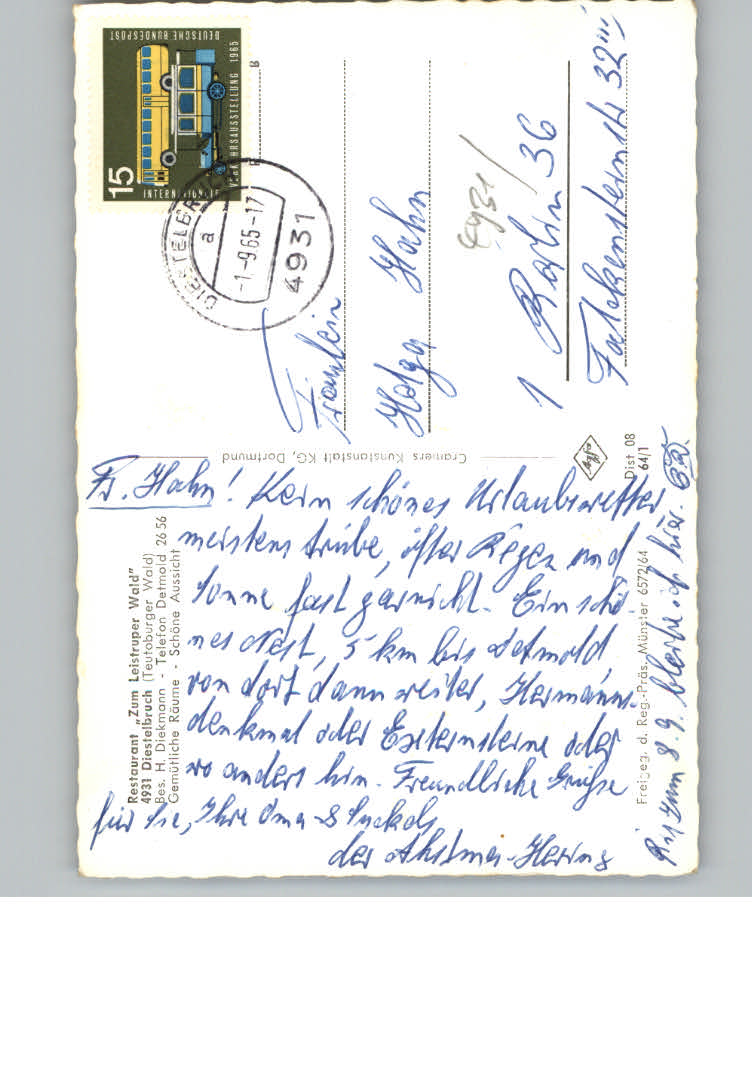 Restaurant „Zum Leistruper Wald"
4931 Diestelbruch (Teutoburger Wald)
Bes. H. Diekmann - Telefon Detmold 26 56
Gemütliche Räume - Schöne Aussicht
Fr. Hahn! Kein schönes Urlaubswetter
meistens trübe, öfter Regen und
Sonne fast garnicht. Ein schö-
nes Nest, 5 km bis Detmold,
von dort dann weiter, Hermanns-
denkmal oder Externsteine oder
wo anders hin. Freundliche Grüße
für Sie, Ihre Oma
der
Bis zum 8.9. bleibe ich hier.
Freigeg. d. Reg.-Präs. Münster 6572/64
Cramers Kunstanstalt KG, Dortmund
Dist 08
64/1
DEUTSCHE BUNDESPOST
INTERNATIONALE
VERKEHRSAUSSTELLUNG 1965
15
DIESTELBRUCH
a
-1.-9.65-17
4931
Fräulein
Helga Hahn
4931
1 Berlin 36
Falckensteinstr 32 III